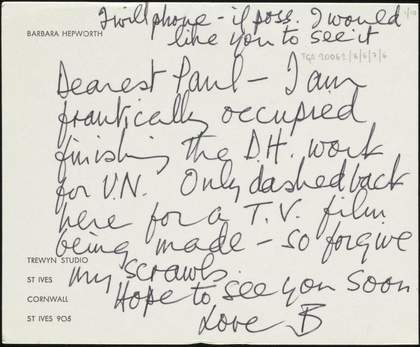 I will phone - if poss. I would
like you to see it
BARBARA HEPWORTH
TGA 20062/2/6/7/6
Dearest Paul - I am
frantically occupied
finishing the D.H. work
for U.N. Only dashed back
here for a T.V. film
being made - so forgive
my scrawls.
TREWYN STUDIO
ST IVES
CORNWALL
ST IVES 905
Hope to see you soon
Love B